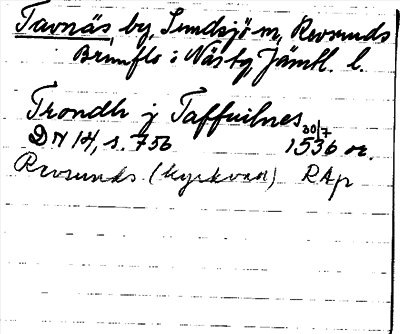 Tavnäs by, Sundsjö sn, Revsunds
Brunflo o Näs tg, Jämtl. l.
Trondh j Taffuilnes
DN 14, s. 756 30/7 1536 or.
Revsunds (kyrkvard) RAp